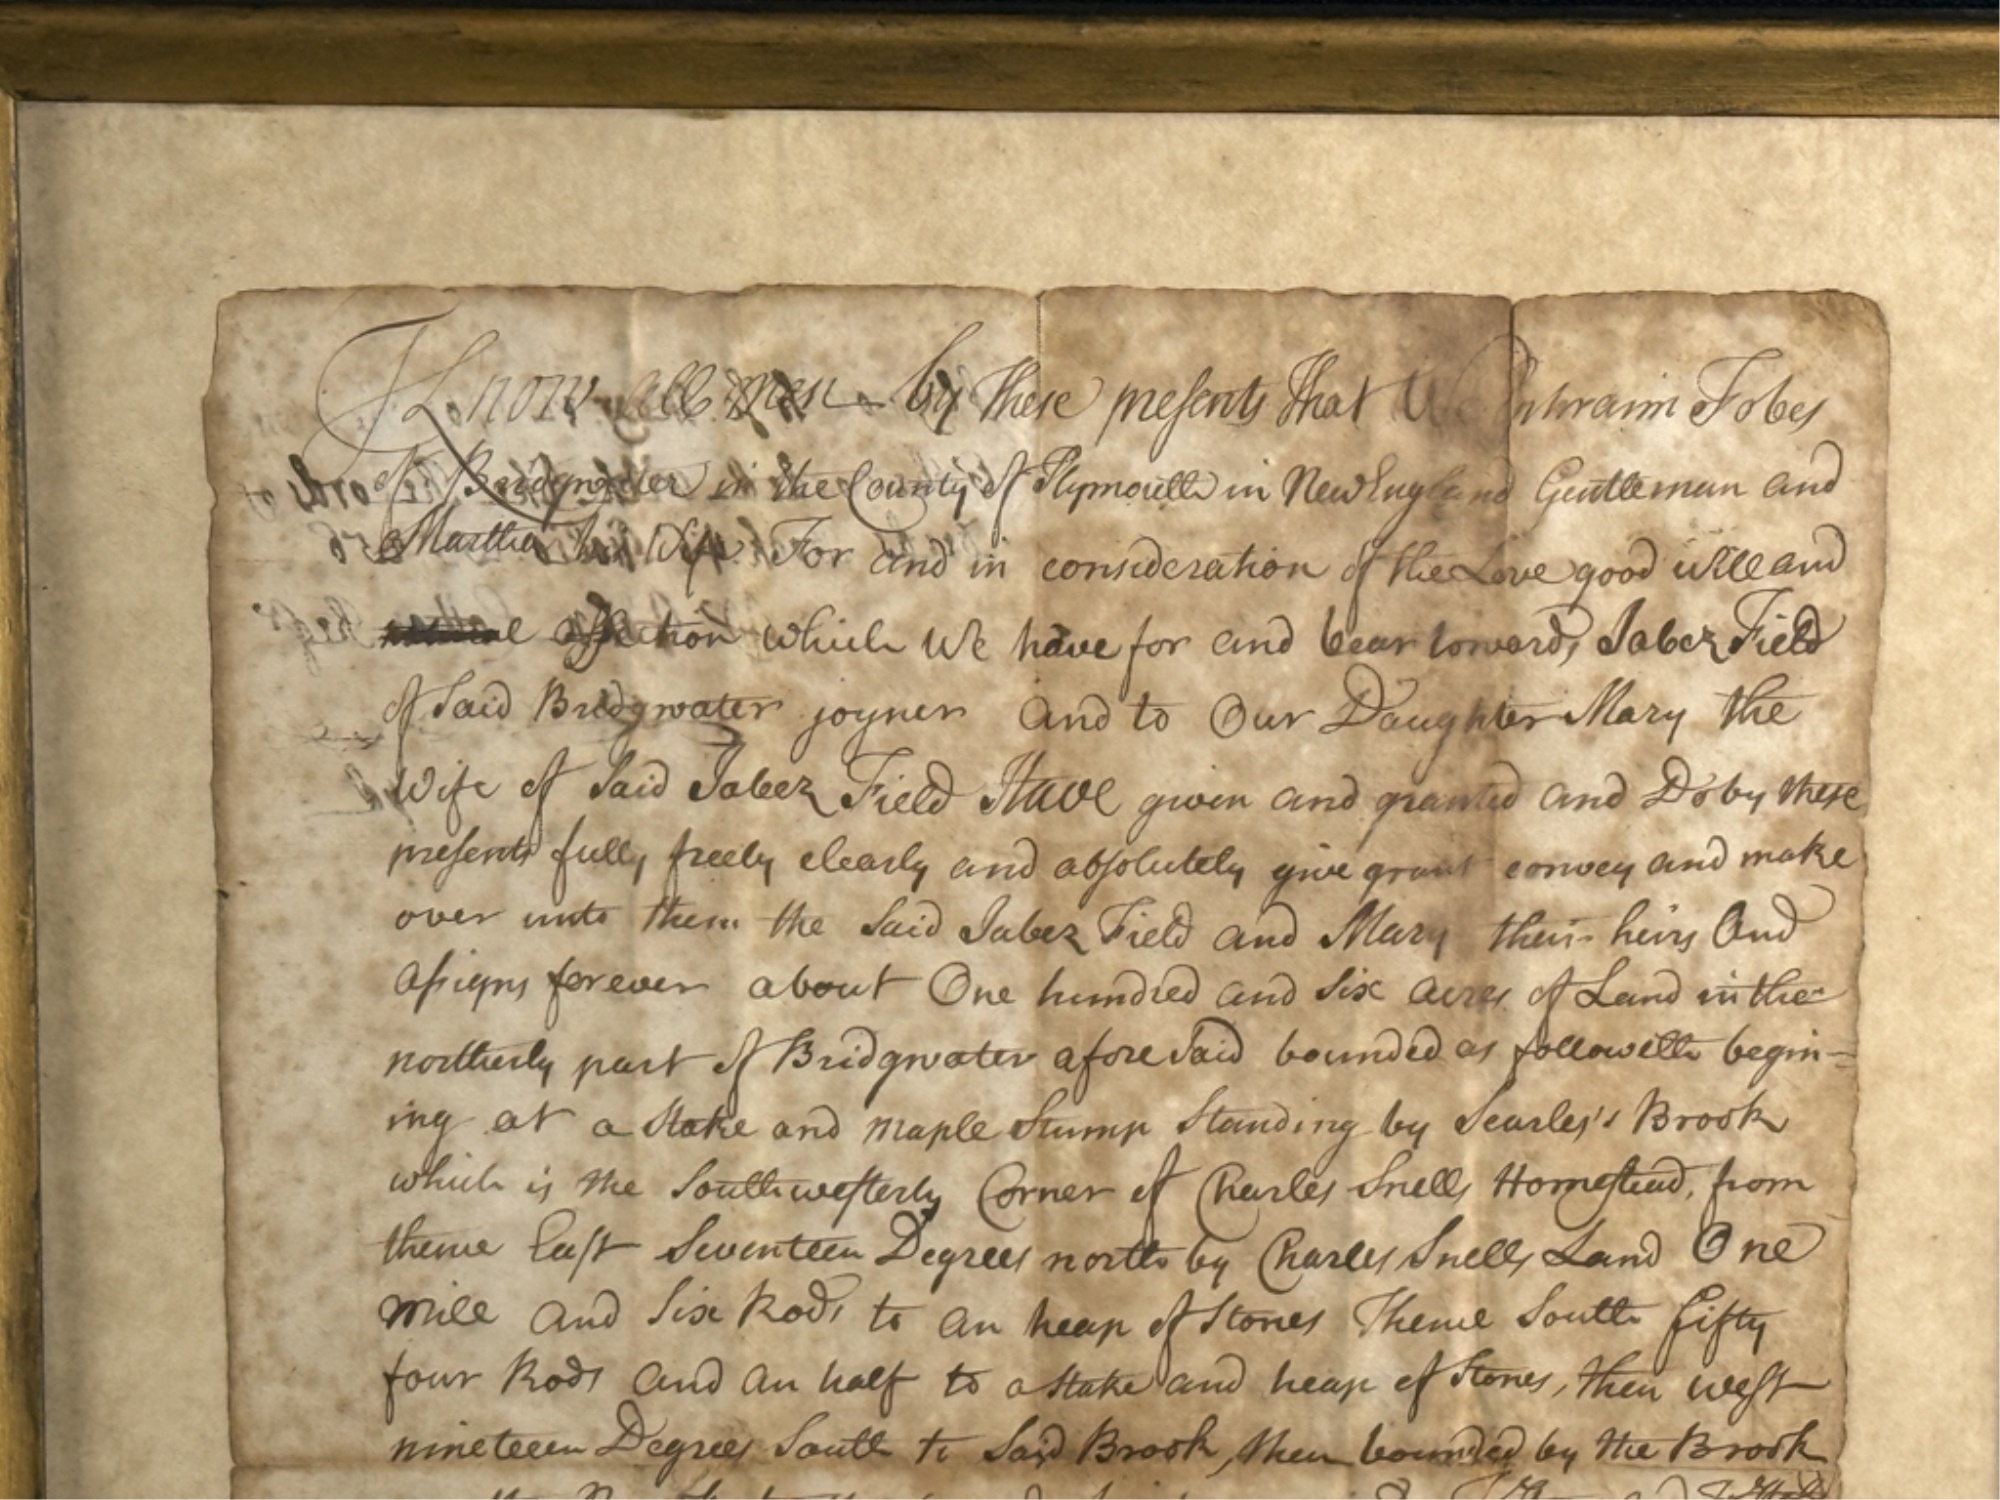 Know all men by these presents that We Ephraim Fobes
of Bridgwater in the County of Plymouth in New England Gentleman and
Martha his Wife For and in consideration of the Love good will and
natural affection which We have for and bear towards Jabez Field
of Said Bridgwater joyner and to Our Daughter Mary the
Wife of Said Jabez Field Have given and granted and Do by these
presents fully freely clearly and absolutely give grant convey and make
over unto them the Said Jabez Field and Mary their heirs And
assigns forever about One hundred and Six acres of Land in the
northerly part of Bridgwater afore Said bounded as followeth begin-
ing at a Stake and maple Stump Standing by Searles's Brook
which is the Southwesterly Corner of Charles Snells Homestead, from
thence East Seventeen Degrees north by Charles Snells Land One
mile and Six Rods to an heap of Stones Thence South fifty
four Rods and an half to a Stake and heap of Stones, then west
nineteen Degrees South to Said Brook, then bounded by the Brook